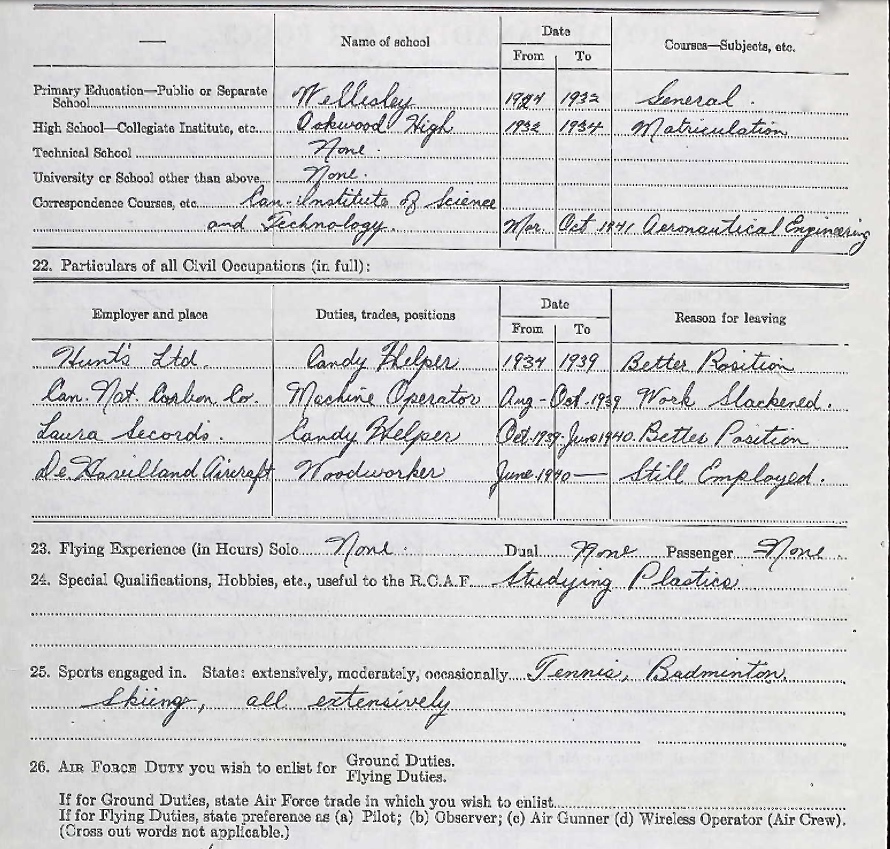 Name of school Date Courses—Subjects, etc.
From To
Primary Education—Public or Separate
School Wellesley 1924 1932 General.
High School—Collegiate Institute, etc. Oakwood High 1932 1934 Matriculation
Technical School None.
University or School other than above None.
Correspondence Courses, etc. Can. Institute of Science
and Technology. Mar. Oct 1941 Aeronautical Engineering
22. Particulars of all Civil Occupations (in full):
Employer and place Duties, trades, positions Date Reason for leaving
From To
Hunt's Ltd. Candy Helper 1934 1939 Better Position
Can. Nat. Carbon Co. Machine Operator Aug - Oct. 1939 Work Slackened.
Laura Secords. Candy Helper Oct. 1939. June 1940. Better Position
De Havilland Aircraft Woodworker June. 1940 — Still Employed.
23. Flying Experience (in Hours) Solo None. Dual None Passenger None
24. Special Qualifications, Hobbies, etc., useful to the R.C.A.F. Studying Plastics
25. Sports engaged in. State: extensively, moderately, occasionally Tennis, Badminton
Skiing, all extensively
26. AIR FORCE DUTY you wish to enlist for Ground Duties.
Flying Duties.
If for Ground Duties, state Air Force trade in which you wish to enlist
If for Flying Duties, state preference as (a) Pilot; (b) Observer; (c) Air Gunner (d) Wireless Operator (Air Crew).
(Cross out words not applicable.)